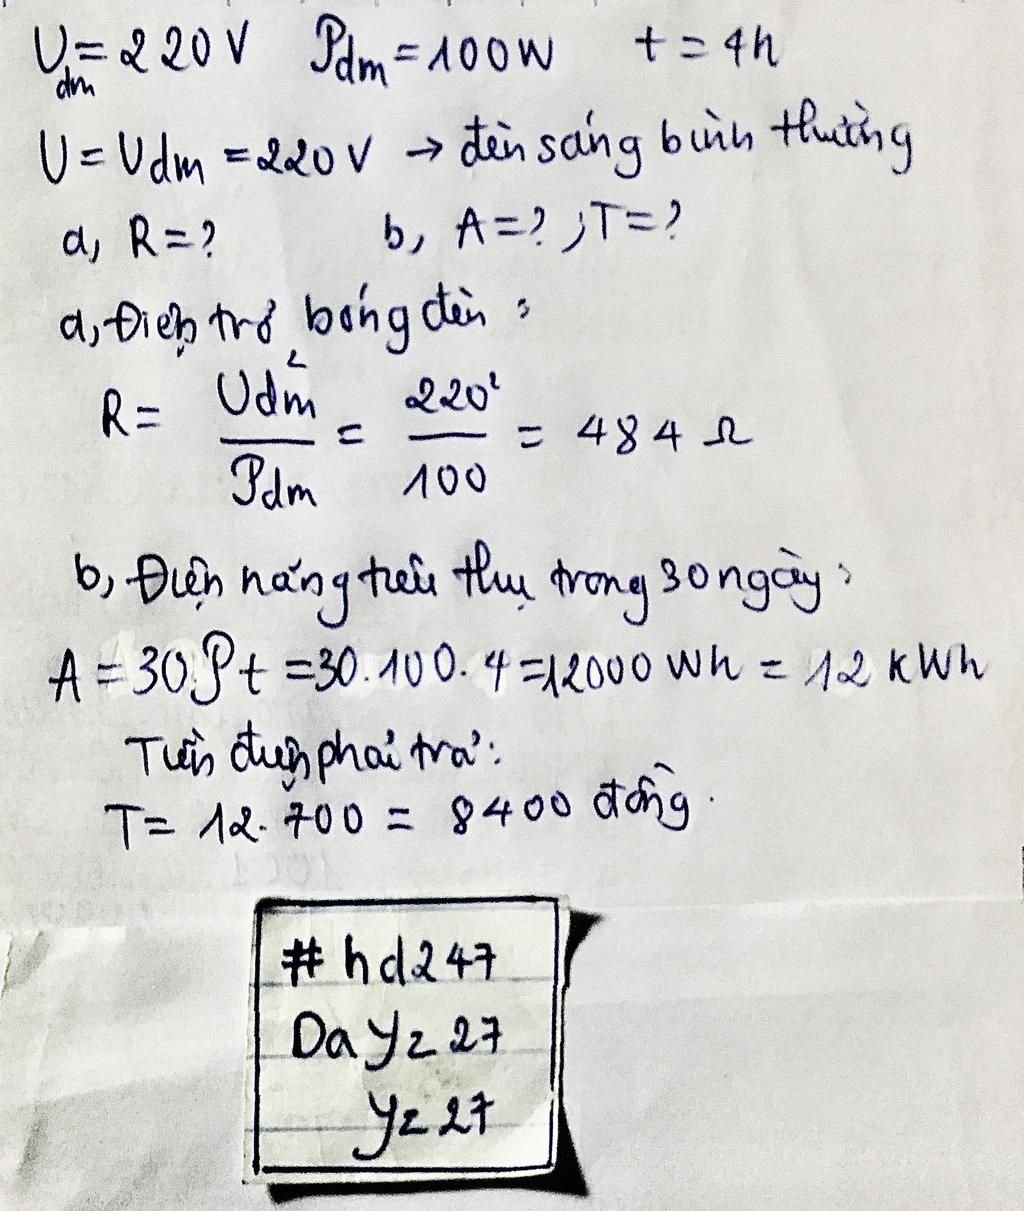 Uđm = 220V Pđm = 100W t = 4h
U = Uđm = 220V → đèn sáng bình thường
a, R = ? b, A = ? ; T = ?
a, Điện trở bóng đèn :
R = Uđm² / Pđm = 220² / 100 = 484 Ω
b, Điện năng tiêu thụ trong 30 ngày :
A = 30.Pt = 30.100.4 = 12000 Wh = 12 kWh
Tiền điện phải trả :
T = 12.700 = 8400 đồng.
# hd247
Dayz27
yz27